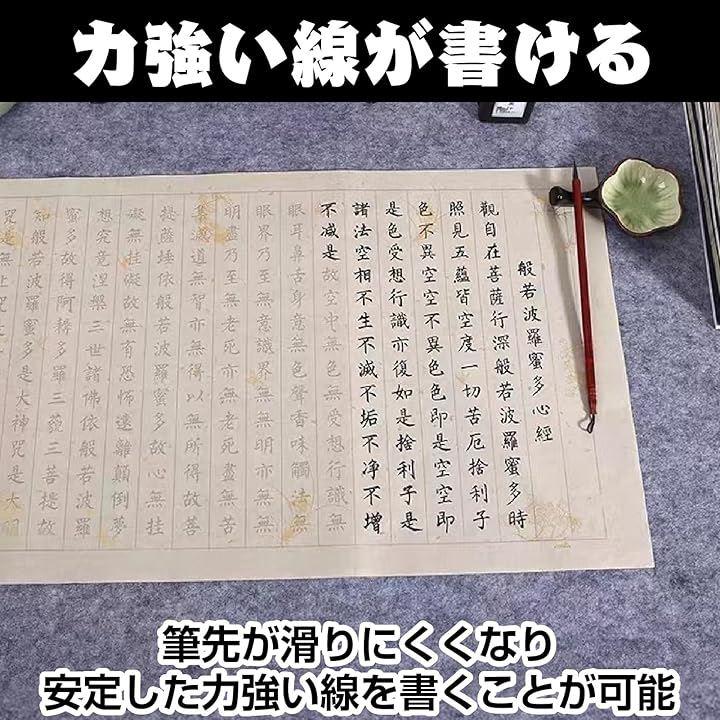 力強い線が書ける
般若波羅蜜多心經
觀自在菩薩行深般若波羅蜜多時
照見五蘊皆空度一切苦厄捨利子
色不異空空不異色色即是空空即
是色受想行識亦復如是捨利子是
諸法空相不生不滅不垢不净不增
不减是故空中無色無受想行識無
眼耳鼻舌身意無色聲香味觸法無
眼界乃至無意識界無無明亦無無
明盡乃至無老死亦無老死盡無苦
集滅道無智亦無得以無所得故菩
提薩埵依般若波羅蜜多故心無挂
礙無挂礙故無有恐怖遠離顛倒夢
想究竟涅槃三世諸佛依般若波羅
蜜多故得阿耨多羅三藐三菩提故
知般若波羅蜜多是大神咒是大明
咒是無上咒
筆先が滑りにくくなり
安定した力強い線を書くことが可能